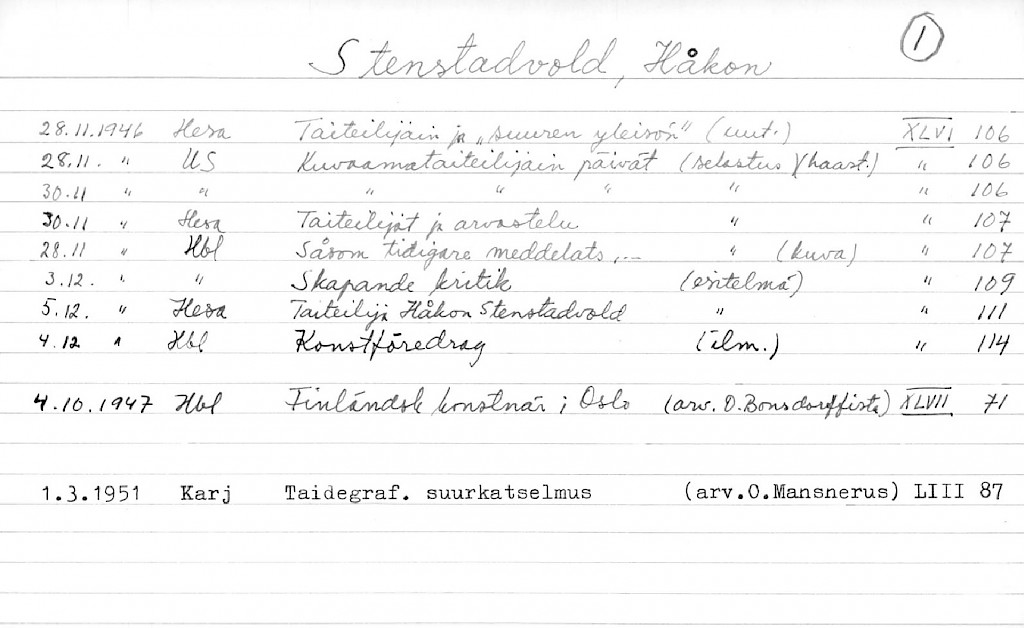 1
Stenstadvold, Håkon
28.11.1946 Hesa Taiteilijain ja „suuren yleisön" (uut.) XLVI 106
28.11. " US Kuvaamataiteilijain päivät (selostus)(haast.) " 106
30.11 " " " " " " " 106
30.11 " Hesa Taiteilijat ja arvostelu " " 107
28.11 " Hbl Såsom tidigare meddelats,... " (kuva) " 107
3.12. " " Skapande kritik (esitelmä) " 109
5.12. " Hesa Taiteilija Håkon Stenstadvold " " 111
4.12 " Hbl Konstföredrag (ilm.) " 114
4.10.1947 Hbl Finländsk konstnär i Oslo (arv. O.Bonsdorffista) XLVII 71
1.3.1951 Karj Taidegraf. suurkatselmus (arv.O.Mansnerus) LIII 87